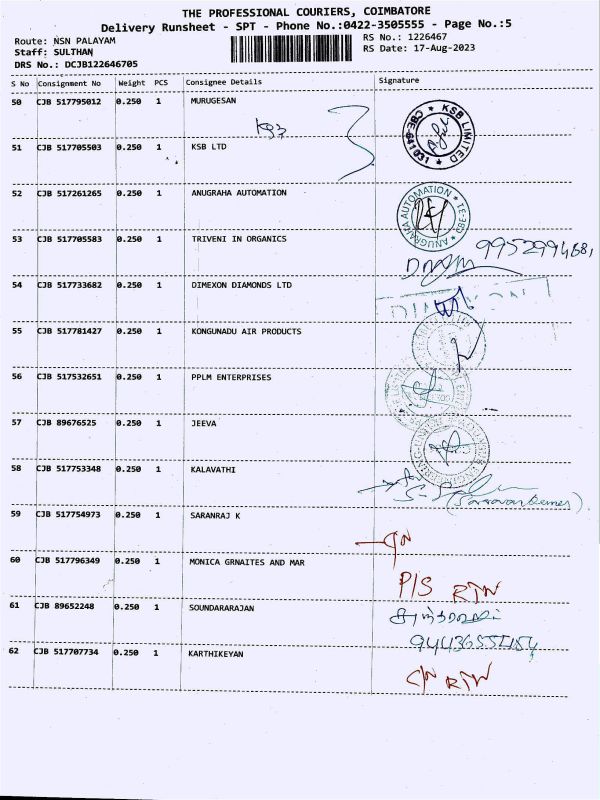 THE PROFESSIONAL COURIERS, COIMBATORE
Delivery Runsheet - SPT - Phone No.:0422-3505555 - Page No.:5
Route: NSN PALAYAM RS No.: 1226467
Staff: SULTHAN RS Date: 17-Aug-2023
DRS No.: DCJB122646705
S No Consignment No Weight PCS Consignee Details Signature
50 CJB 517795012 0.250 1 MURUGESAN
KSB LIMITED * CBE-641031 *
51 CJB 517705503 0.250 1 KSB LTD
52 CJB 517261265 0.250 1 ANUGRAHA AUTOMATION
ANUGRAHA AUTOMATION
53 CJB 517705583 0.250 1 TRIVENI IN ORGANICS
54 CJB 517733682 0.250 1 DIMEXON DIAMONDS LTD
55 CJB 517781427 0.250 1 KONGUNADU AIR PRODUCTS
56 CJB 517532651 0.250 1 PPLM ENTERPRISES
57 CJB 89676525 0.250 1 JEEVA
58 CJB 517753348 0.250 1 KALAVATHI
59 CJB 517754973 0.250 1 SARANRAJ K
C/N
60 CJB 517796349 0.250 1 MONICA GRNAITES AND MAR
P/S RTN
61 CJB 89652248 0.250 1 SOUNDARARAJAN
62 CJB 517707734 0.250 1 KARTHIKEYAN
C/N RTN